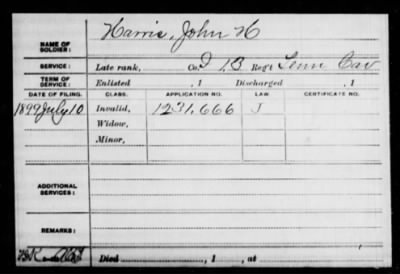 Harris, John H
NAME OF SOLDIER:
SERVICE: Late rank, Co. I 13 Reg't Tenn Cav
TERM OF SERVICE: Enlisted , 1 Discharged , 1
DATE OF FILING. CLASS. APPLICATION NO. LAW CERTIFICATE NO.
1899 July 10 Invalid, 1231,666 J
Widow,
Minor,
ADDITIONAL SERVICES:
REMARKS:
Died , 1 , at